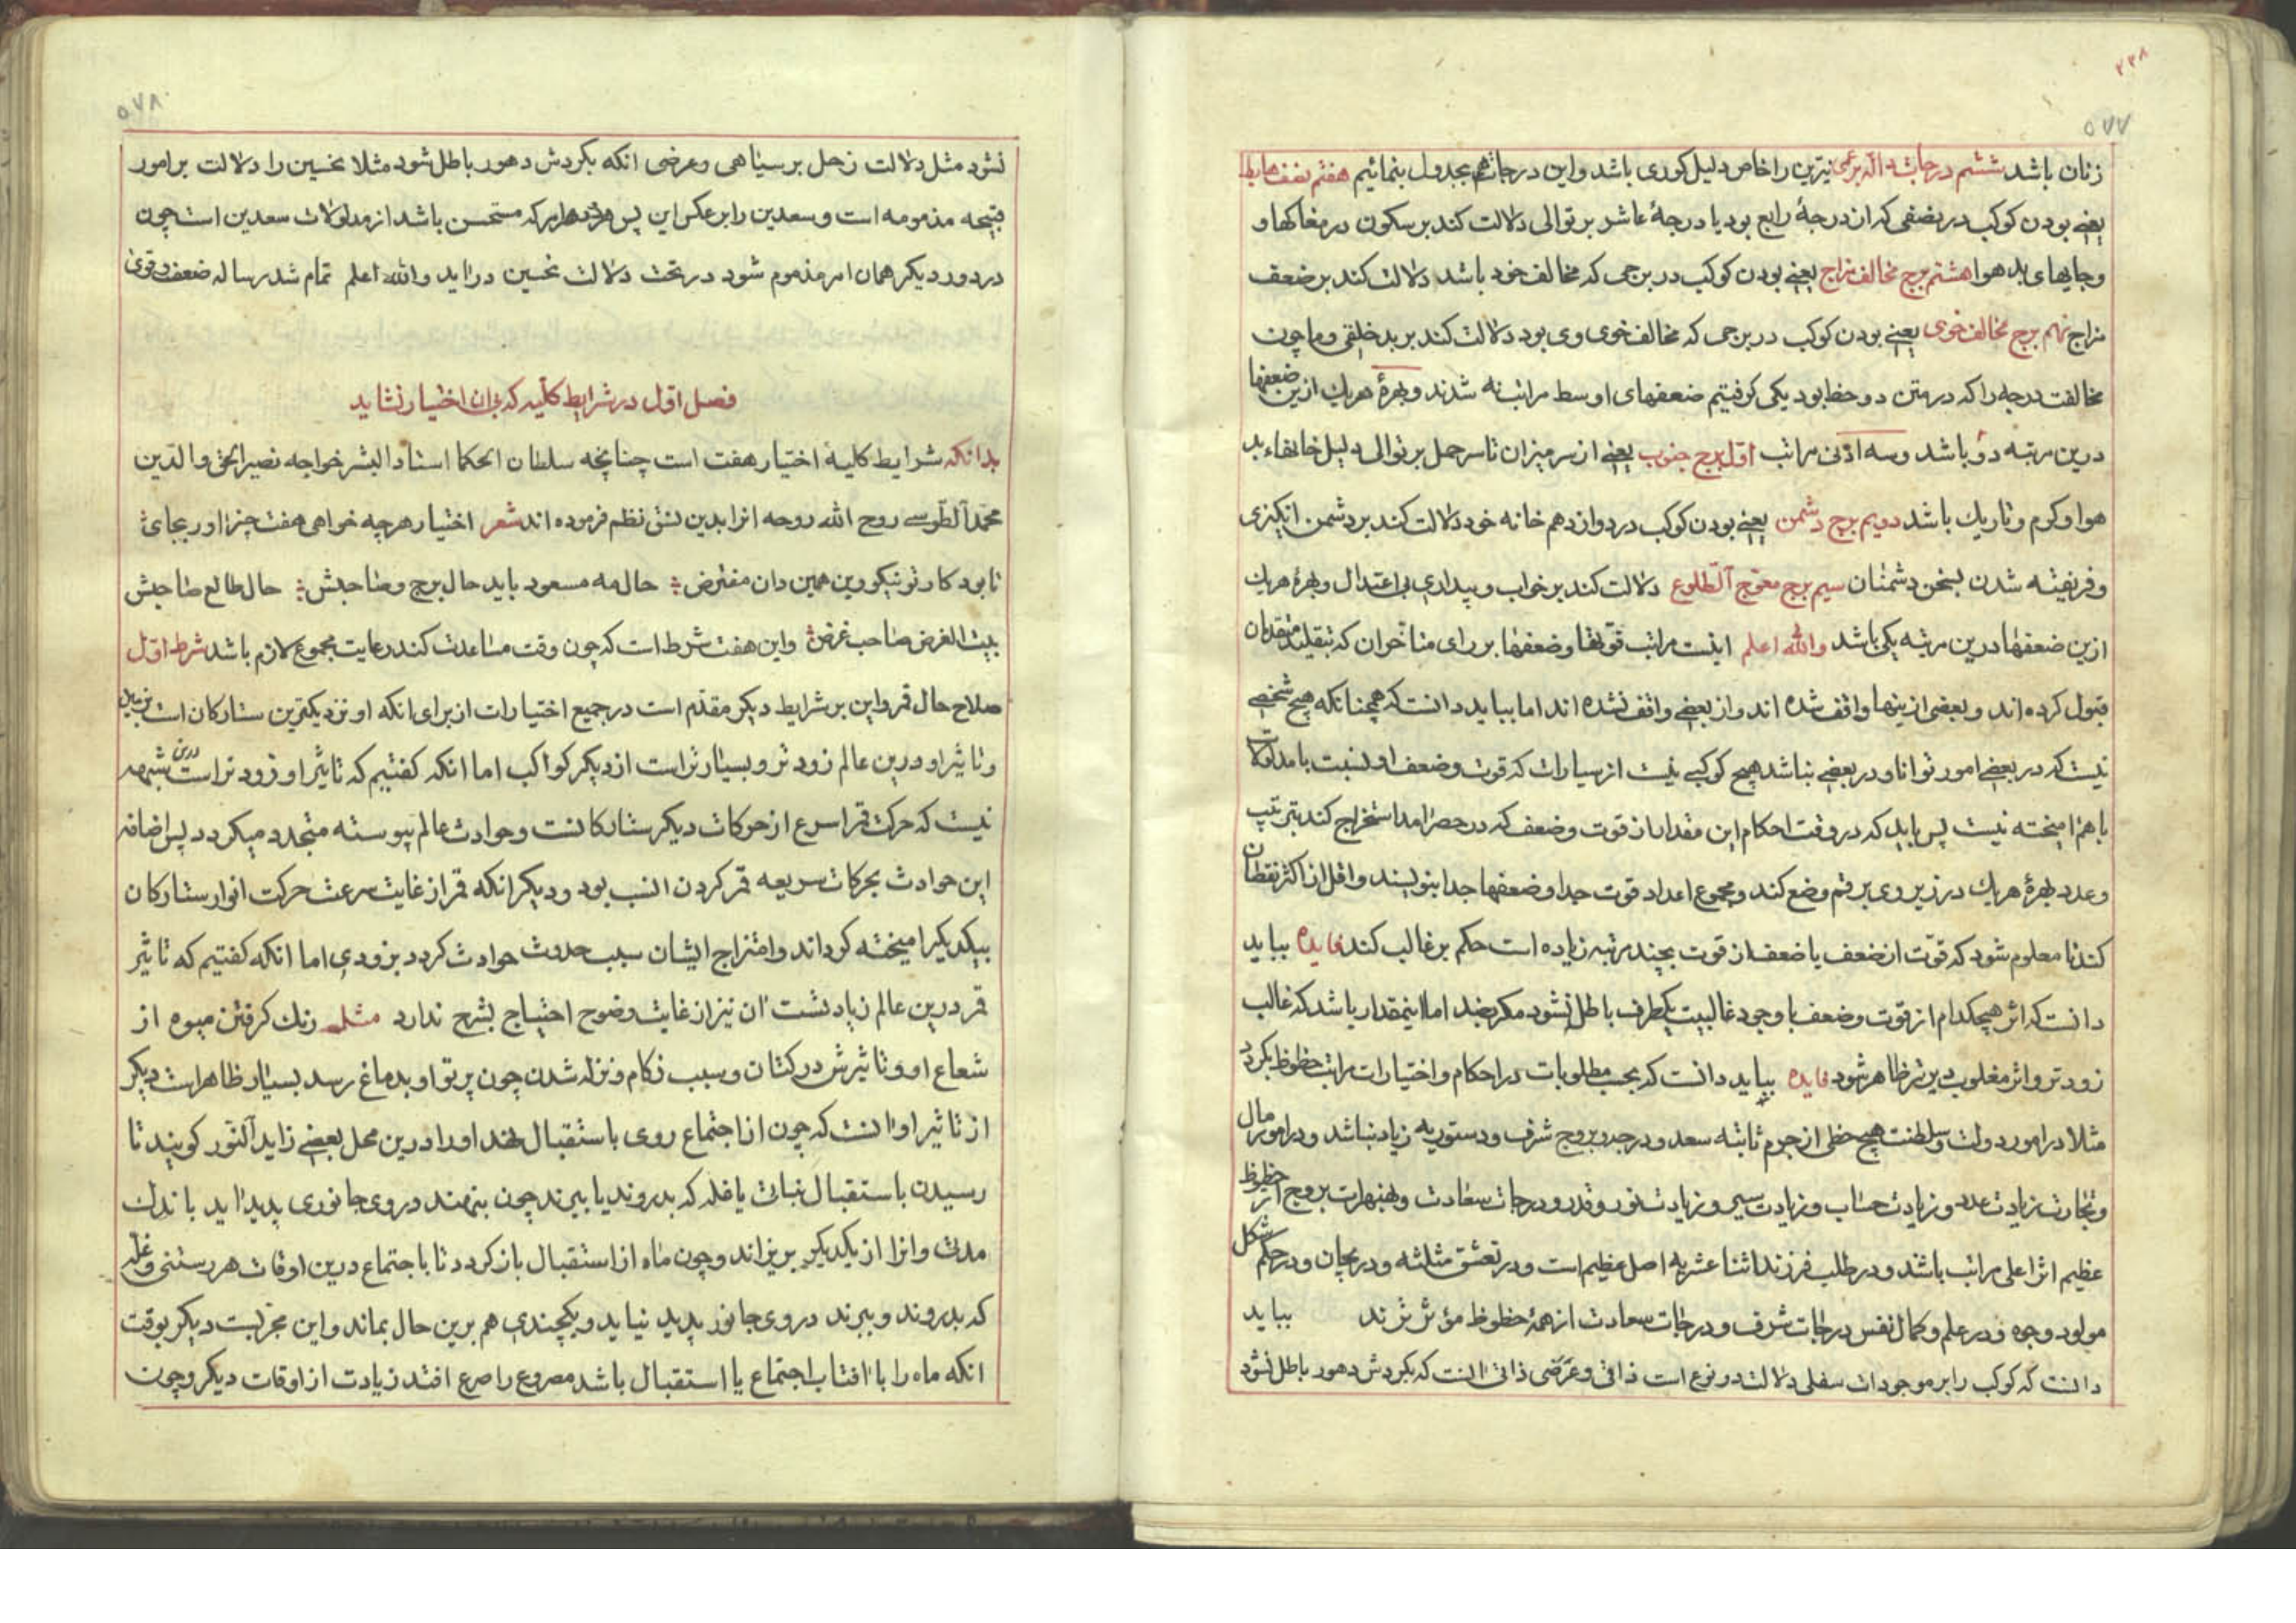 ۲۳۸
۵۷۷
زنان باشد ششم درجات داله بر عمی نیرین را خاص دلیل کوری باشد و این درجات هم بجدول بنمائیم هفتم نصف هابط
یعنی بودن کوکب در نصفی که از درجهٔ رابع بود یا درجهٔ عاشر بر توالی دلالت کند بر سکون در مغاکها و
و جایهای بد هوا هشتم برج مخالف مزاج یعنی بودن کوکب در برجی که مخالف خود باشد دلالت کند بر ضعف
مزاج نهم برج مخالف خوی یعنی بودن کوکب در برجی که مخالف خوی وی بود دلالت کند بر بد خلقی و ما چون
مخالفت درجه را که در متن دو حظ بود یکی گرفتیم ضعفهای اوسط مراتب نه شدند و بهرهٔ هریک ازین ضعفها
درین مرتبه دو باشد و سه ادنی مراتب اول برج جنوب یعنی از سر میزان تا سر حمل بر توالی دلیل خانهاء بد
هوا و کرم و تاریک باشد دویم برج دشمن یعنی بودن کوکب در دوازدهم خانه خود دلالت کند بر دشمن انکیزی
و فریفته شدن بسخن دشمنان سیم برج معوج الطلوع دلالت کند بر خواب و بیداری بی اعتدال و بهرهٔ هریک
ازین ضعفها درین مرتبه یکی باشد والله اعلم اینست مراتب قوتها و ضعفها بر رای متاخران که بتقلید متقدمان
قبول کرده اند و بعضی ازینها واقف شده اند و از بعضی واقف نشده اند اما بباید دانست که همچنانکه هیچ شخصی
نیست که در بعضی امور توانا و در بعضی نباشد هیچ کوکبی نیست از سیارات که قوت و ضعف او نسبت با مدلولات
باهم امیخته نیست پس باید که در وقت احکام این مقدار از قوت و ضعف که در حصر امد استخراج کند بترتیب
و عدد بهرهٔ هریک در زیر وی برقم وضع کند و مجموع اعداد قوت جدا و ضعفها جدا بنویسند و اقل از اکثر نقطان
کند تا معلوم شود که قوت از ضعف یا ضعف از قوت بچند مرتبه زیاده است حکم بر غالب کند فایده بباید
دانست که اثر هیچکدام از قوت و ضعف با وجود غالبیت یکطرف باطل نشود مکر بضد اما اینمقدار باشد که غالب
زودتر و اثر مغلوب دیرتر ظاهر شود فایده بباید دانست که بحسب مطلوبات در احکام و اختیارات مراتب حظوظ بکردد
مثلا در امور دولت و سلطنت هیچ حظی از جرم ثابته سعد و درجه و بروج شرف و دستوریه زیاد نباشد و در امور مال
و تجارت زیادت عدد و زیادت حساب و زیادت سیر و زیادت نور و قدر و درجات سعادت و بروج حظوظ اثر
عظیم اثر اعلی مراتب باشند و در طلب فرزند اثنا عشریه اصل عظیم است و در تعشق مثلثه و در بحان و در حکم شکل
مولود وجوه و در علم و کمال نفس درجات شرف و درجات سعادت از همهٔ حظوظ مؤثرترند بباید
دانست که کوکب را بر موجودات سفلی دلالت دو نوع است ذاتی و عرضی ذاتی انست که بکردش دهور باطل نشود
۵۷۸
نشود مثل دلالت زحل بر سیاهی و عرضی انکه بکردش دهور باطل شود مثلا نحسین را دلالت بر امور
قبیحه مذمومه است و سعدین را بر عکس این پس هر امر که مستحسن باشد از مدلولات سعدین است چون
در دور دیکر همان امر مذموم شود در تحت دلالت نحسین دراید والله اعلم تمام شد رساله ضعف و قوی
فصل اول در شرایط کلیه که بی ان اختیار نشاید
بدانکه شرایط کلیه اختیار هفت است چنانچه سلطان الحکما استاد البشر خواجه نصیر الحق والدین
محمد الطوسی روح الله روحه انرا بدین نسق نظم فرموده اند شعر اختیار هرچه خواهی هفت چیز اور بجای
تا بود کار تو نیکو وین همین دان مفترض حال مه مسعود باید حال برج و صاحبش حال طالع صاحبش
بیت الغرض صاحب غرض و این هفت شرط است که چون وقت مساعدت کند رعایت مجموع لازم باشد شرط اول
صلاح حال قمر و این بر شرایط دیکر مقدم است در جمیع اختیارات از برای انکه او نزدیکترین ستارکان است بزمین
و تاثیر او درین عالم زودتر و بسیارتر است از دیکر کواکب اما انکه کفتیم که تاثیر او زودتر است درین شبهه
نیست که حرکت قمر اسرع از حرکات دیکر ستارکانست و حوادث عالم پیوسته متجدد میکردد پس اضافه
این حوادث بحرکات سریعه قمر کردن انسب بود و دیکر انکه قمر از غایت سرعت حرکت انوار ستارکان
بیکدیکر امیخته کرداند و امتزاج ایشان سبب حدوث حوادث کردد بزودی اما انکه کفتیم که تاثیر
قمر درین عالم زیادتست ان نیز از غایت وضوح احتیاج بشرح ندارد مثل رنک کرفتن میوه از
شعاع او و تاثیرش در کتان و سبب زکام و نزله شدن چون پرتو او بدماغ رسد بسیار ظاهر است دیکر
از تاثیر او انست که چون از اجتماع روی باستقبال نهد او را درین محل بعضی زاید النور کویند تا
رسیدن باستقبال نباتی یا غله که بدروند یا ببرند چون بنهند در وی جانوری پدید اید باندک
مدتی و انرا از یکدیکر بریزاند و چون ماه از استقبال باز کردد تا باجتماع درین اوقات هر رستنی و غله
که بدروند و ببرند در وی جانور پدید نیاید و یکچندی هم برین حال بماند و این مجربست دیکر بوقت
انکه ماه را با افتاب اجتماع یا استقبال باشد مصروع را صرع افتد زیادت از اوقات دیکر و چون